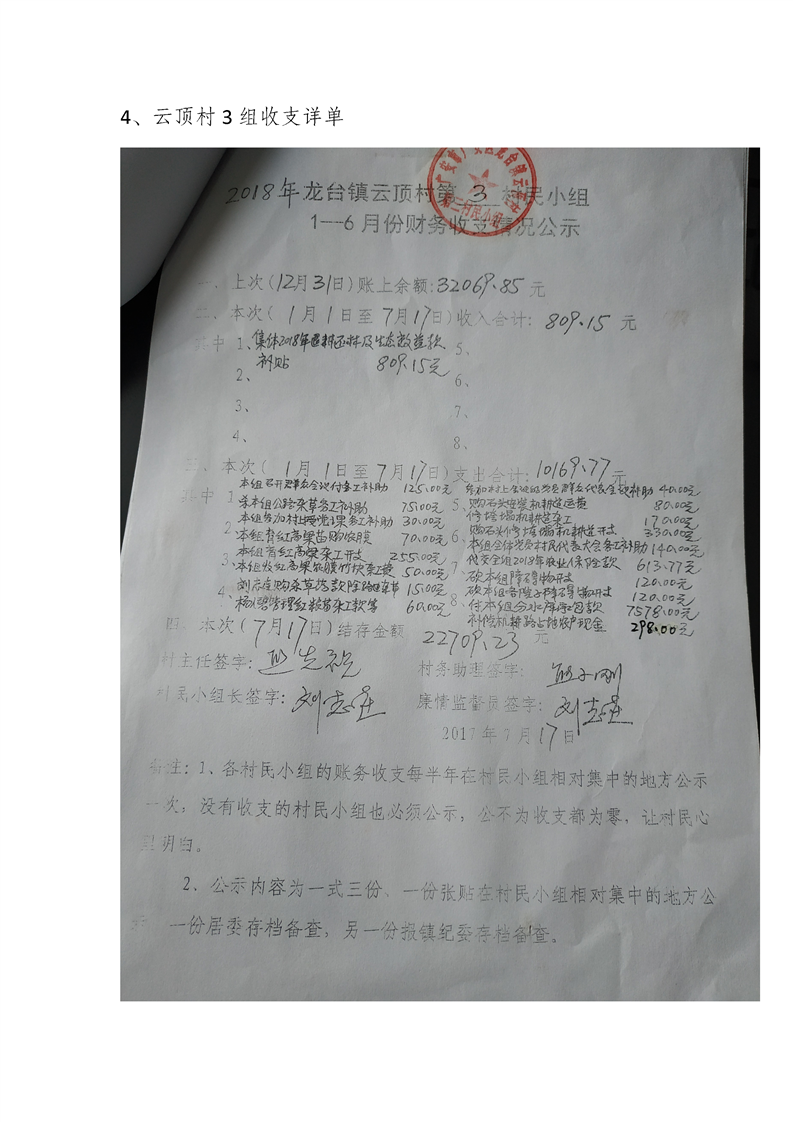 4、云顶村3组收支详单
2018年龙台镇云顶村第 3 村民小组
1---6月份财务收支情况公示
一、上次(12月31日)账上余额:32069.85 元
二、本次( 1月1日至7月17日)收入合计: 809.15 元
其中 1、集体2018年退耕还林及生态效益款 5、
补贴 809.15元
2、 6、
3、 7、
4、 8、
三、本次( 1月1日至7月17日)支出合计:10169.77元
其中 1 本组召开群众会议付务工补助 125.00元 参加村上会议组党员群众代表会议补助 40.00元
杀本组公路杂草务工补助 75.00元 5、购石头安装机耕道运费 80.00元
本组参加村上党课务工补助 30.00元 修塘塌机耕道杂工 170.00元
2 本组青红高粱苗购农膜 70.00元 6、购石头修塘塌机耕道开支 330.00元
本组青红高粱杂工开支 255.00元 本组全体党员村民代表大会务工补助 140.00元
3 50.00元 7 代交全组2018年农业保险款 613.77元
刘志庄购杀草 15.00元 砍本组障碍物开支 120.00元
4 杨 管理红粮苗杂工款等 60.00元 8、 120.00元
付本组 款 7578.00元
补偿机耕路占地农户现金 298.00元
四、本次(7月17日)结存金额 22709.23 元
村主任签字: 村务助理签字:
村民小组长签字: 刘志庄 廉情监督员签字: 刘志庄
2017年7月17日
备注:1、各村民小组的账务收支每半年在村民小组相对集中的地方公示
一次,没有收支的村民小组也必须公示,公不为收支都为零,让村民心
里明白。
2、公示内容为一式三份、一份张贴在村民小组相对集中的地方公
一份居委存档备查,另一份报镇纪委存档备查。